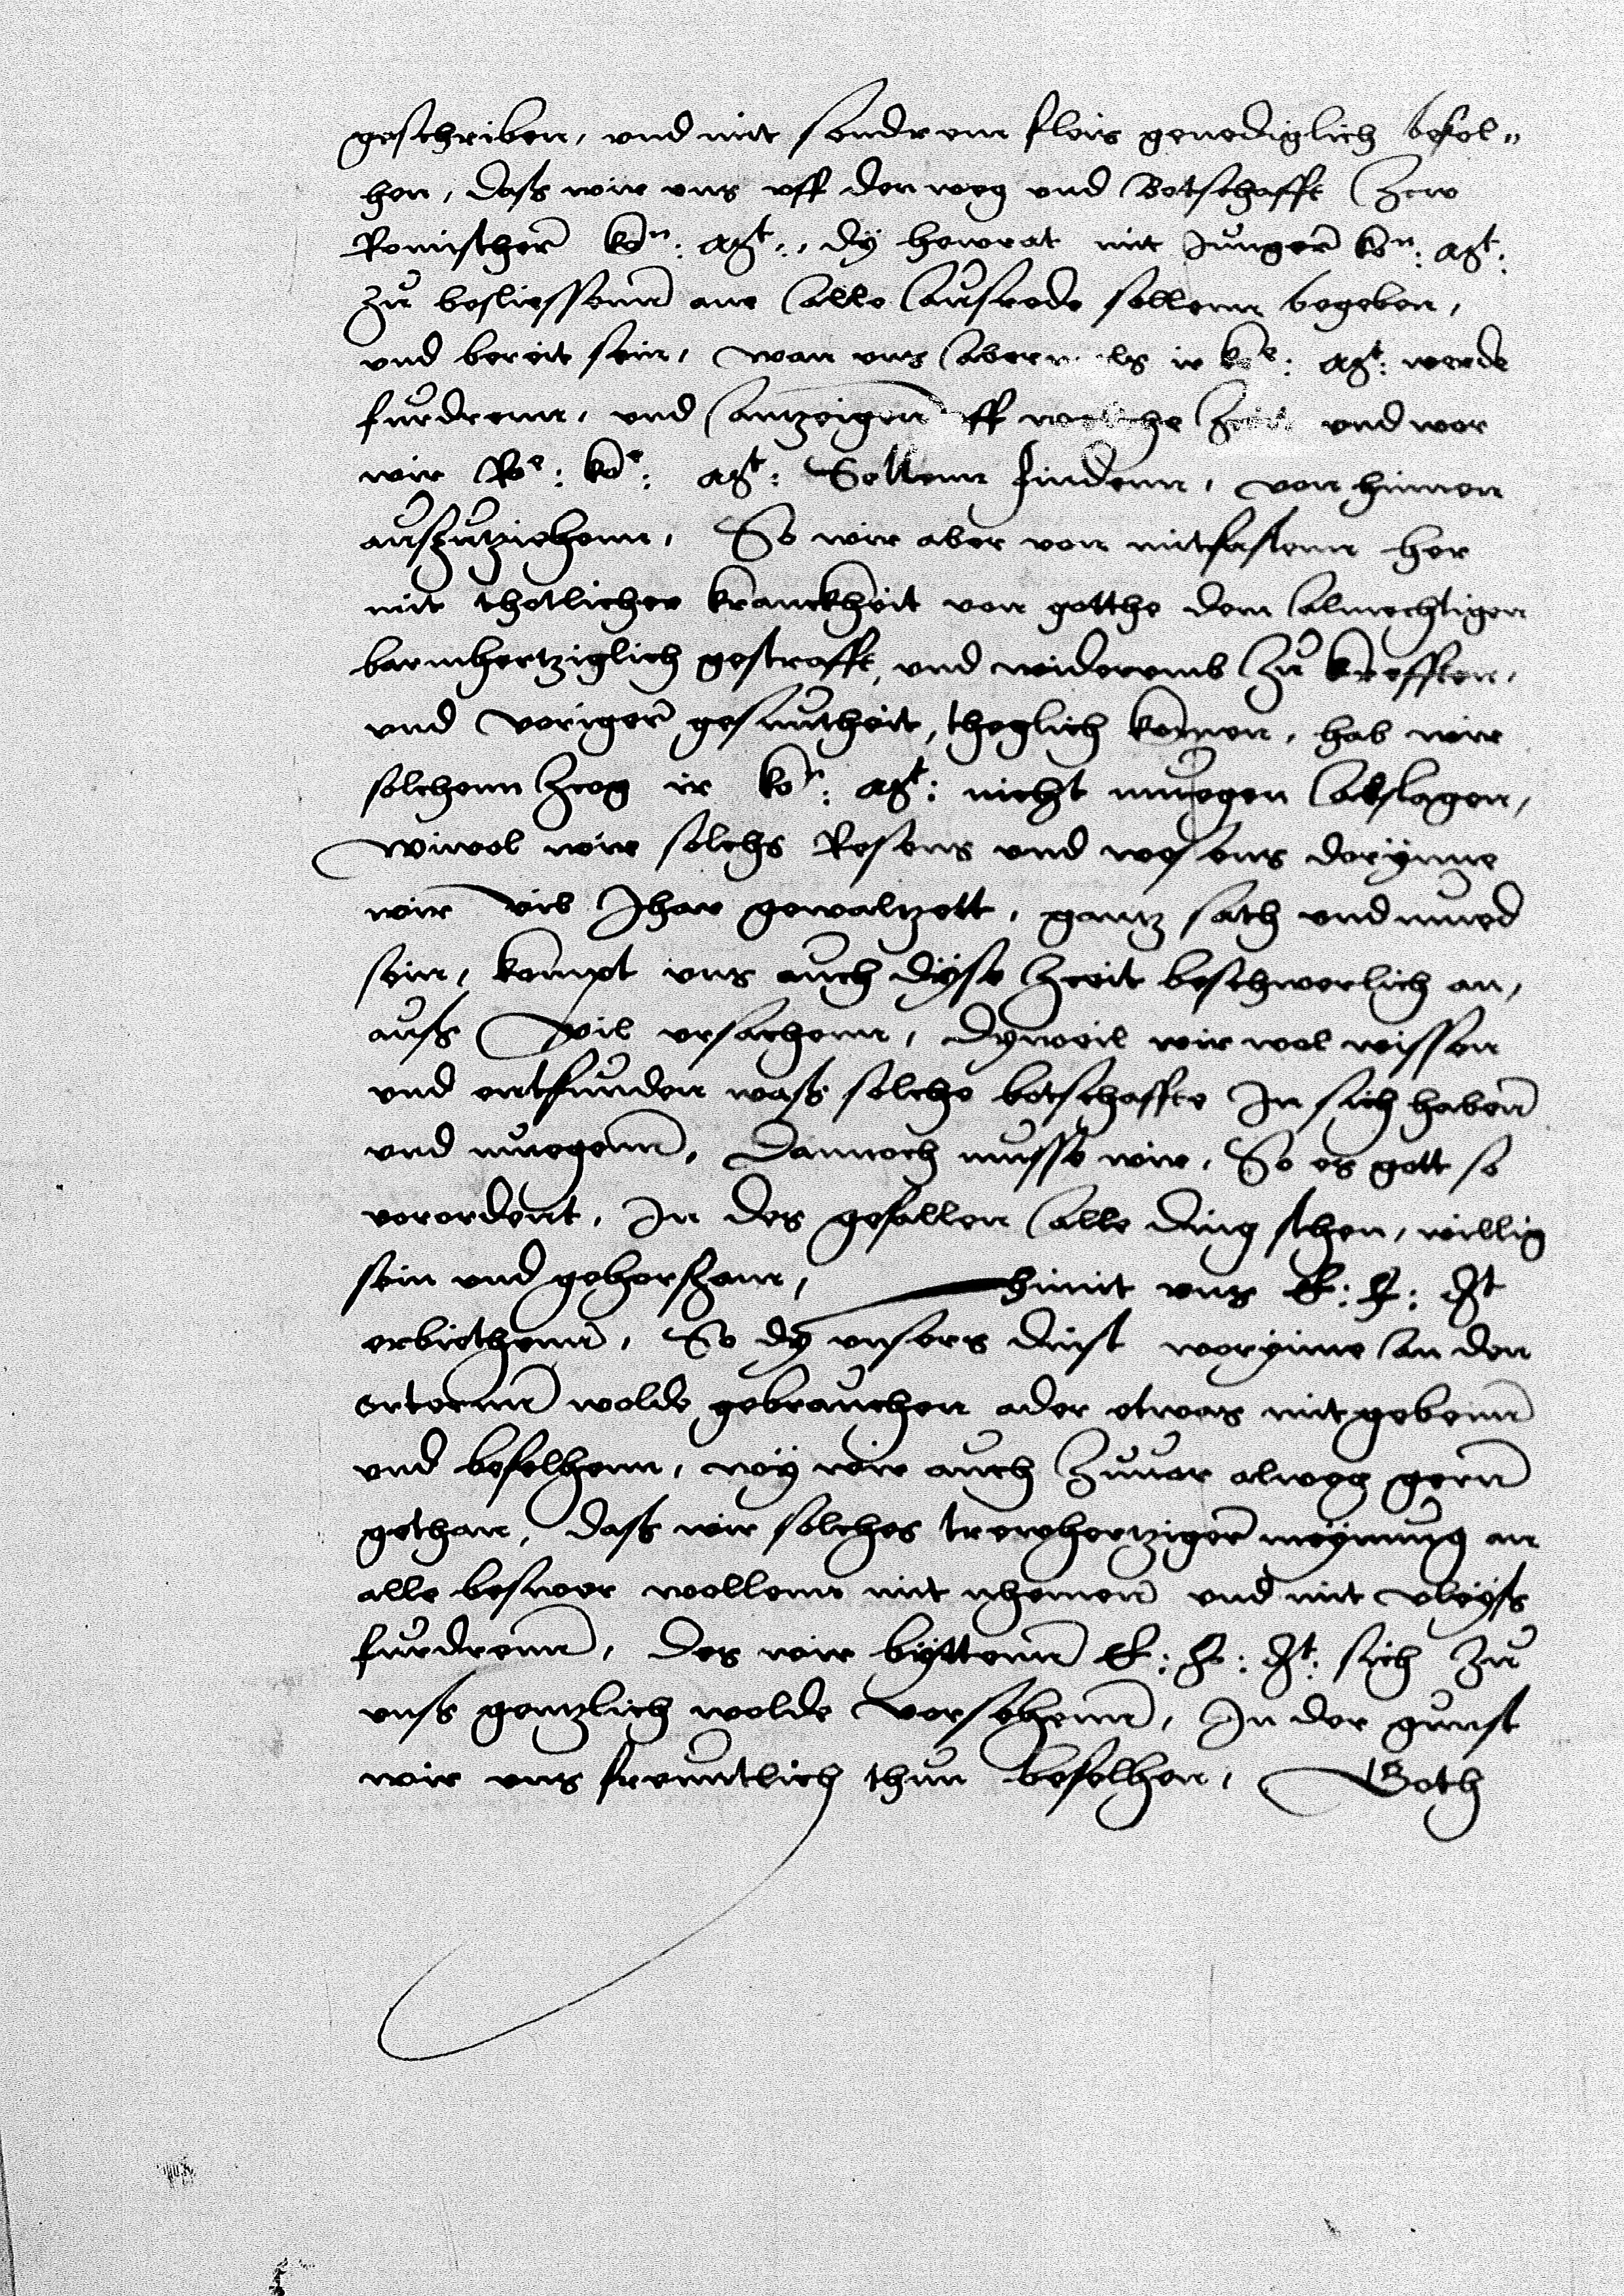 geschriben, vnd mit sondrem fleis genediglich befel„
hen, dass wir vns vff den weg vnd Botschafft Zcw
Romischer ko͞n: Mgt:, dy hewrat mit Junger ko͞n: Mgt:
zu besliessenn ane alle ausrede sollenn begeben,
vnd bereit sein, wan vns aber ir koe: Mgt: werde
furdrenn, vnd antzeigen vff welche Zeit vnd wor
wir Roe: koe: Mgt: Sollenn findenn, von hinnen
auszutziehenn, So wir aber von mitfastenn her
mit thotlicher kranckheit von gotthe dem almechtigen
barmhertziglich gestrafft, vnd widerumb Zu krefften,
vnd voriger gesuntheit, theglich komen, hab wir
solchenn Zcog ir kon: Mgt: nicht muegen abslagen,
wiwol wir solchs Resens vnd wesens dorynne
wir vil Jhar gewaltzett, gantz sath vnd mued
sein, kompt vns auch dyse Zceit beschwerlich an,
auss vil vrsachenn, dyweil wir wol wissen
vnd entfunden wass solche botschaffte In sich haben
vnd muegenn, Dannoch musse wir, So es gott so
verordent, In des gefallen alle ding sthen, willig
sein vnd gehorsam, himit vns E: F: Gt
erbiethenn, So dy vnsers dinst worynne an den
orternn wolde gebrauchen ader etwas mit gebenn
vnd befelhenn, wy wir auch Zuuor alweg gern
gethan, dass wir solches trewhertziger meynung an
alle beswer wollenn mit nhemen vnd mit vleyss
furdrenn, des wir byttenn E: F: Gt: sich zu
vnss gentzlich wolde vorsehenn, In der gunst
wir vns freuntlich thun befelhen, Goth